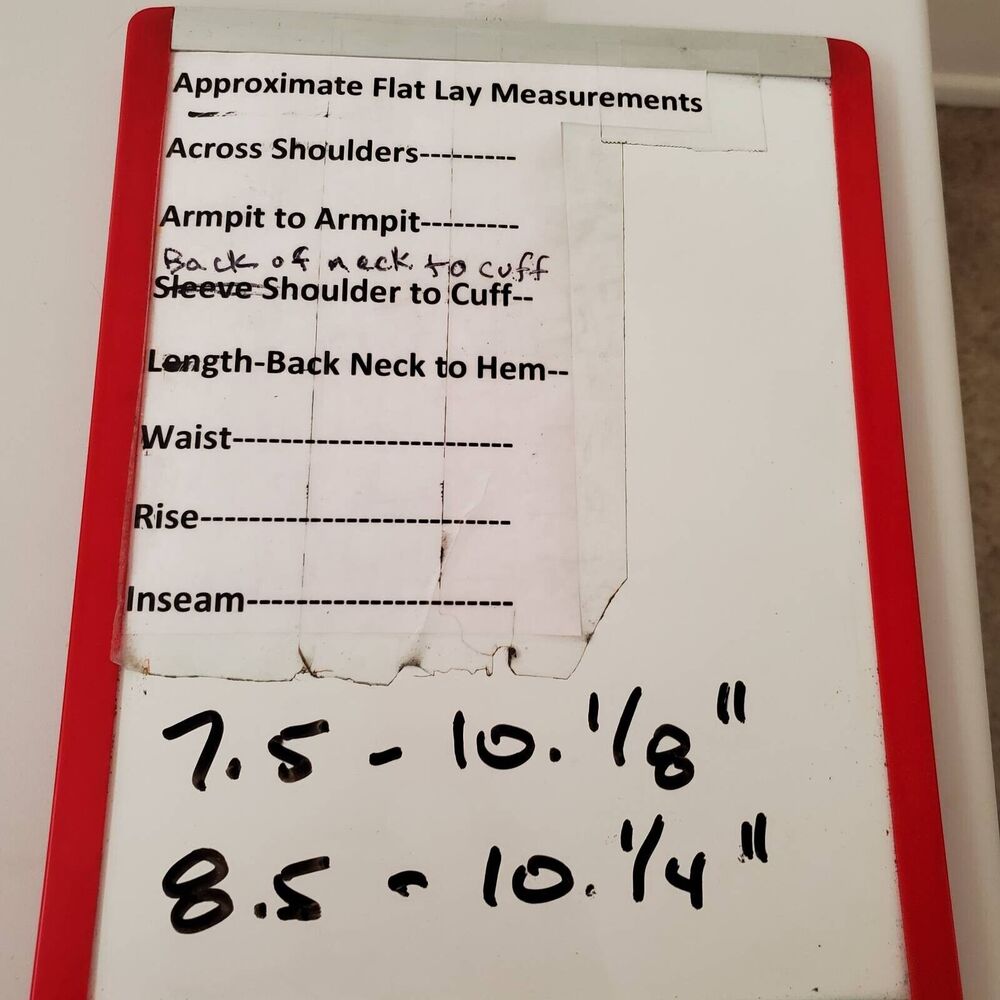 Approximate Flat Lay Measurements
Across Shoulders---------
Armpit to Armpit----------
Back of neck to cuff
Sleeve Shoulder to Cuff--
Length-Back Neck to Hem--
Waist-----------------------
Rise--------------------------
Inseam----------------------
7.5 - 10. 1/8"
8.5 - 10. 1/4"